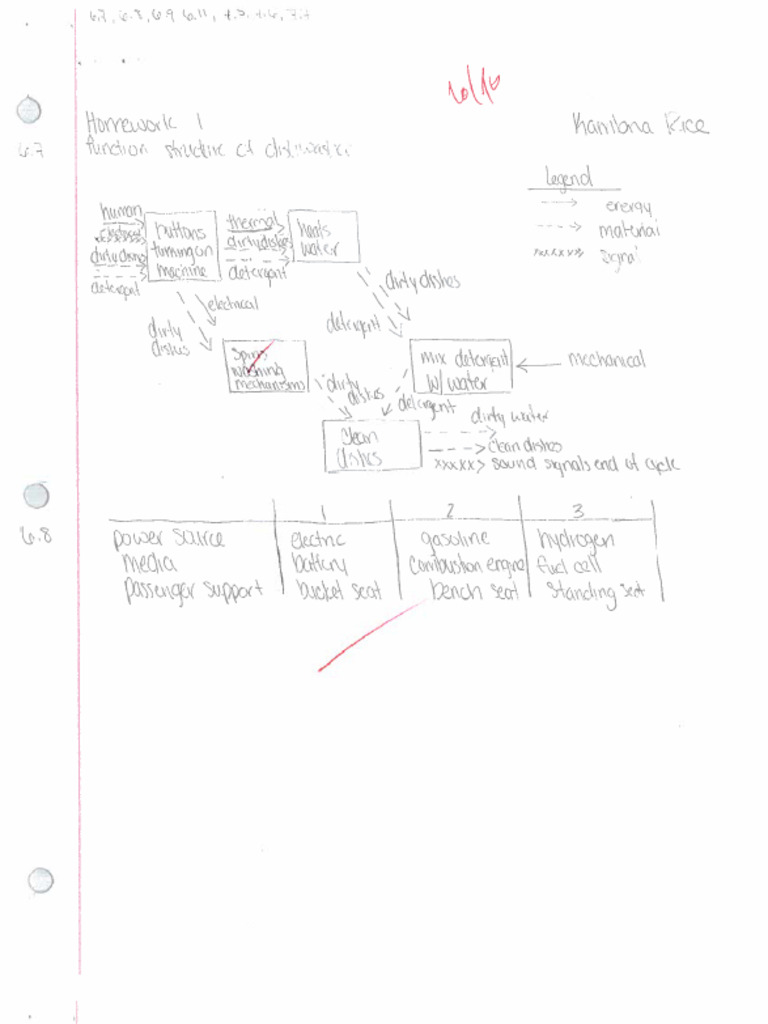 6.7, 6.8, 6.9 6.11, 7.3, 7.6, 7.7
10/10
Homework 1
Rice
6.7
function structure of dishwasher
Legend
energy
material
xxxxxx> signal
human
electrical
dirty dishes
detergent
buttons
turning on
machine
thermal
dirty dishes
detergent
heats
water
electrical
dirty
dishes
dirty dishes
detergent
spins
washing
mechanisms
mix detergent
w/ water
mechanical
dirty
dishes
detergent
clean
dishes
dirty water
clean dishes
xxxxx> sound signals end of cycle
6.8
1 2 3
power source electric gasoline hydrogen
media battery combustion engine fuel cell
passenger support bucket seat bench seat standing seat